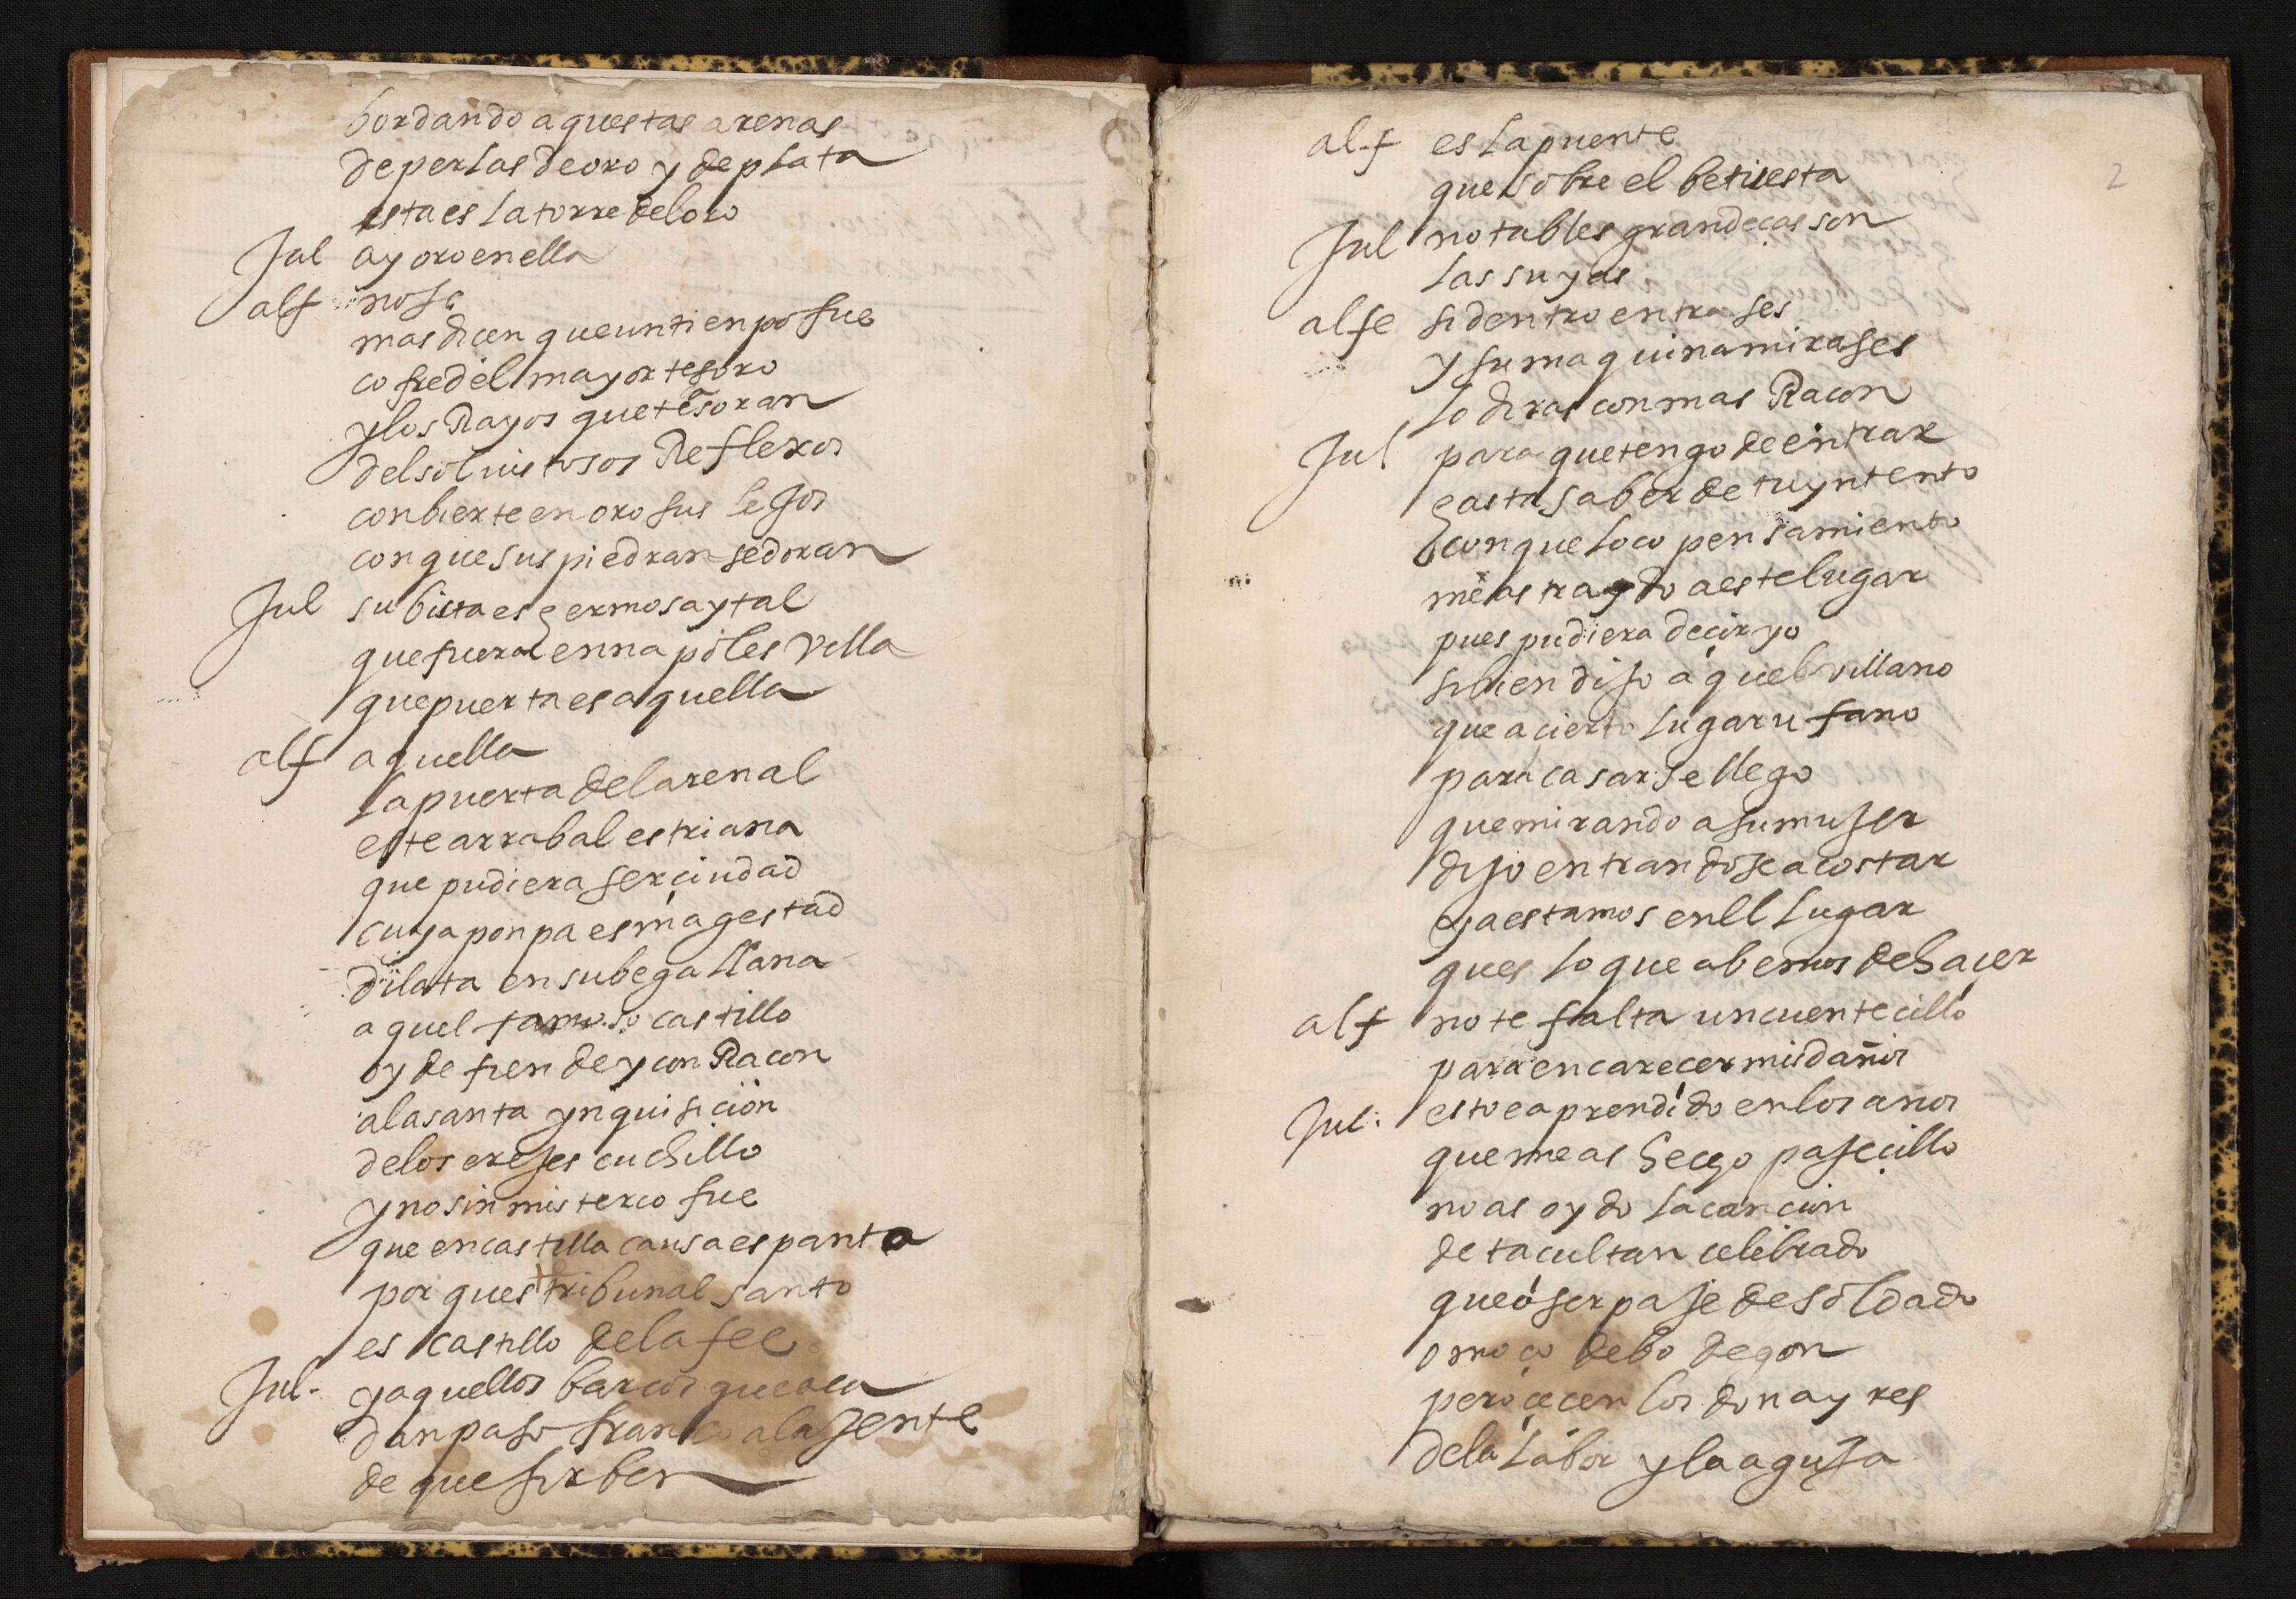 bordando aquestas arenas
de perlas de oro y de plata
esta es la torre del oro
Jul ay oro en ella
alf no se
mas dicen que un tienpo fue
cofre del mayor tesoro
y los Rayos que tesoran
del sol vistosos Reflexos
conbierte en oro sus lejos
con que sus piedran se doran
Jul su bista es hermosa y tal
que fuera en napoles vella
que puerta es aquella
alf aquella
la puerta del arenal
este arrabal es triana
que pudiera ser ciudad
cuya ponpa es magestad
dilata en su bega llana
aquel famoso castillo
oy defiende y con Racon
a la santa ynquisicion
de los erejes cuchillo
y no sin misterio fue
que en castilla causa espanto
por ques tribunal santo
es castillo de la fee
Jul. y aquellos barcos que aca
dan paso franco a la jente
de que sirben
2
alf es la puente
que sobre el betis esta
Jul notables grandeças son
las suyas
alfe si dentro entrases
y su maquina mirases
lo diras con mas Racon
Jul para que tengo de entrar
hasta saber de tu yntento
con que loco pensamiento
me as traydo a este lugar
pues pudiera decir yo
si bien dijo aquel villano
que a cierto lugar ufano
para casarse llego
que mirando a su mujer
dijo entrandose a costar
ya estamos enel lugar
ques lo que abemos de haçer
alf no te falta un cuentecillo
para encarecer mis daños
Jul. esto e aprendido en los años
que me as hecho pajecillo
no as oydo la cancion
de tacultan celebrado
que o ser paje de soldado
o moço debo de gon
pero çecen los donayres
de la labor y la aguja